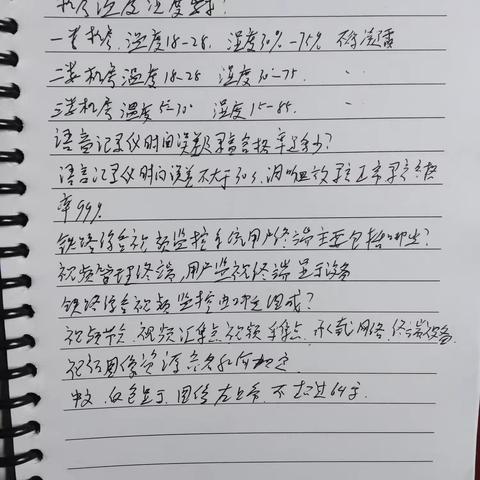 机房温度湿度要求?
一类机房.温度18-28. 湿度30%-75% 不结露
二类机房温度18-28 湿度30-75. 〃
三类机房温度5-30 湿度15-85. 〃
语音记录仪时间误差录音合格率是多少?
语音记录仪时间误差不大于30s,
率99%
铁路综合视频监控系统用户终端主要包括哪些?
视频管理终端,用户监视终端 显示设备
铁路综合视频监控由哪些组成?
视频节点 视频汇集点 视频采集点. 承载网络.终端设备.
视频图像资源命名如何规定
中文.白色显示.图像左上角.不超过64字.